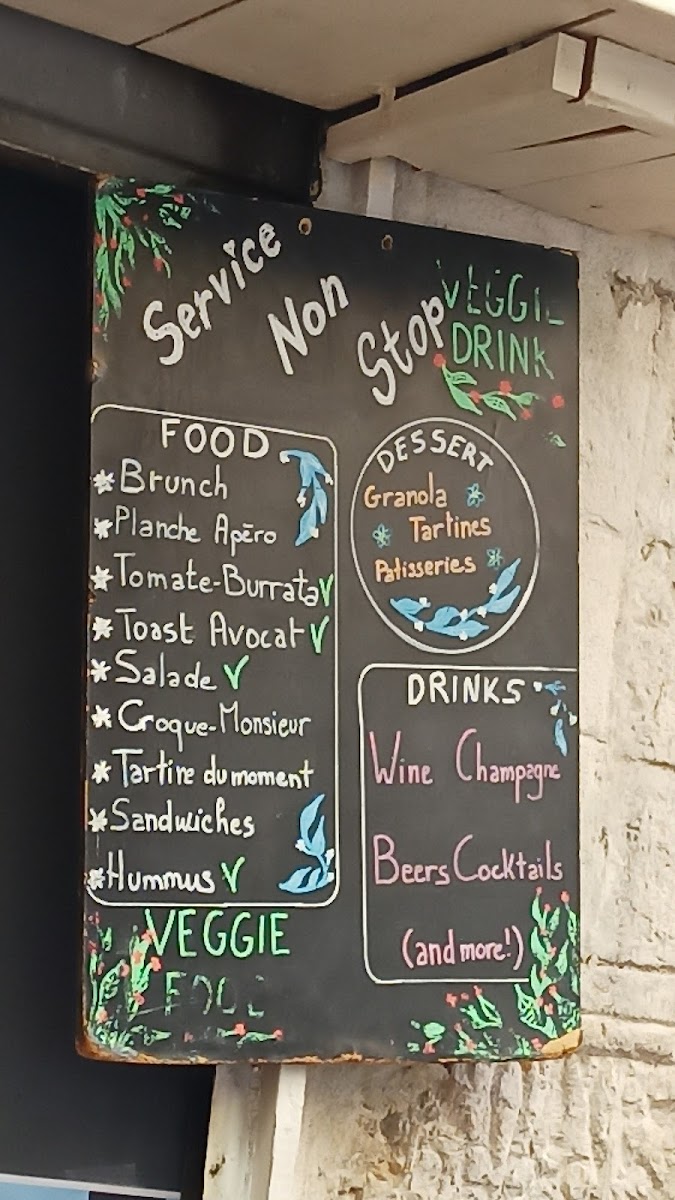 Service
Non
Stop
VEGGIE
DRINK
FOOD
Brunch
Planche Apéro
Tomate-Burrata ✓
Toast Avocat ✓
Salade ✓
Croque-Monsieur
Tartine du moment
Sandwiches
Hummus ✓
VEGGIE
FOOD
DESSERT
Granola
Tartines
Patisseries
DRINKS
Wine Champagne
Beers Cocktails
(and more!)